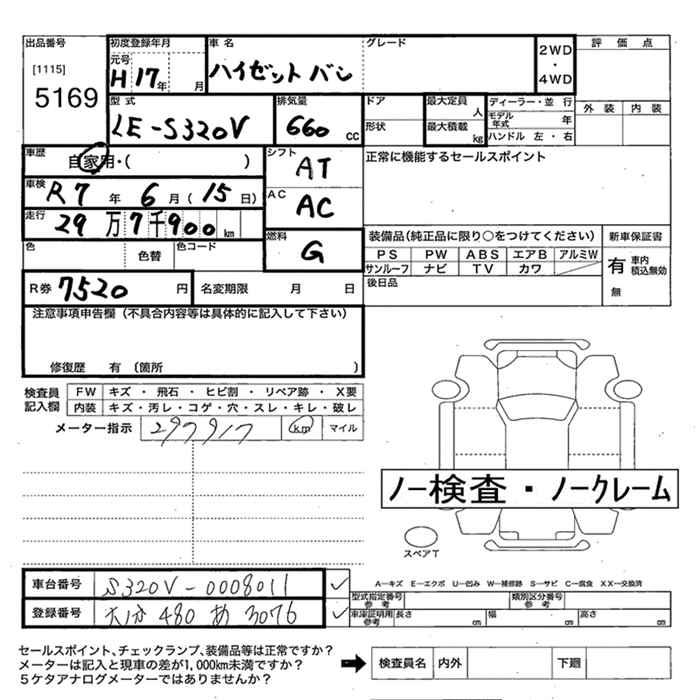 出品番号 初度登録年月 車名 グレード 2WD・4WD 評価点
[1115] 元号
5169 H17年 月 ハイゼットバン
外装 内装
型式 排気量 ドア 最大定員 人 ディーラー・並行
LE-S320V 660 cc 形状 最大積載 kg モデル年式 年
ハンドル 左・右
車歴 自家用・( ) シフト AT 正常に機能するセールスポイント
車検 R7年 6月(15日) AC AC
走行 29万7千900km
色 色替 色コード 燃料 G 装備品(純正品に限り○をつけてください) 新車保証書
PS PW ABS エアB アルミW 有 車内積込無効
サンルーフ ナビ TV カワ 無
R券 7520円 名変期限 月 日 後日品
注意事項申告欄(不具合内容等は具体的に記入して下さい)
修復歴 有 〔箇所 〕
検査員記入欄 FW キズ・飛石・ヒビ割・リペア跡・X要
内装 キズ・汚レ・コゲ・穴・スレ・キレ・破レ
メーター指示 297917 km マイル
ノー検査・ノークレーム
スペアT
車台番号 S320V-0008011 ✓ A-キズ E-エクボ U-凹み W-補修跡 S-サビ C-腐食 XX-交換済
登録番号 大分 480 あ 3076 ✓ 型式指定番号 参考 類別区分番号 参考
車庫証明用 参考 長さ cm 幅 cm 高さ cm
セールスポイント、チェックランプ、装備品等は正常ですか?
メーターは記入と現車の差が1,000km未満ですか? ➡ 検査員名 内外 下廻
5ケタアナログメーターではありませんか?